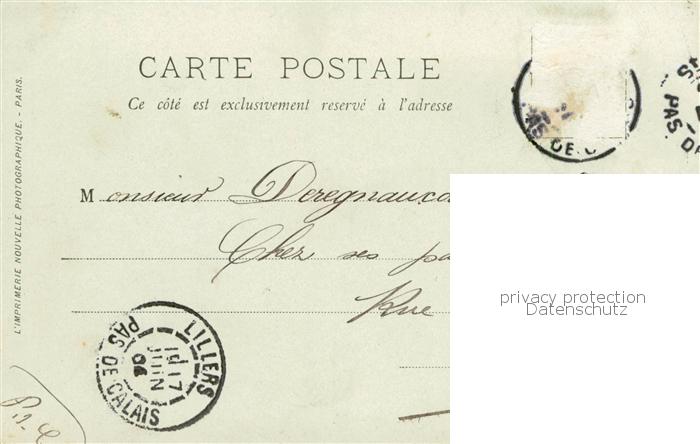 CARTE POSTALE
Ce côté est exclusivement reservé à l'adresse
L'IMPRIMERIE NOUVELLE PHOTOGRAPHIQUE. - PARIS.
Monsieur Deregnauco
Chez ses pa
Rue
privacy protection
Datenschutz
LILLERS
17
JUIN
04
PAS DE CALAIS
PAS DE C
PAS DE